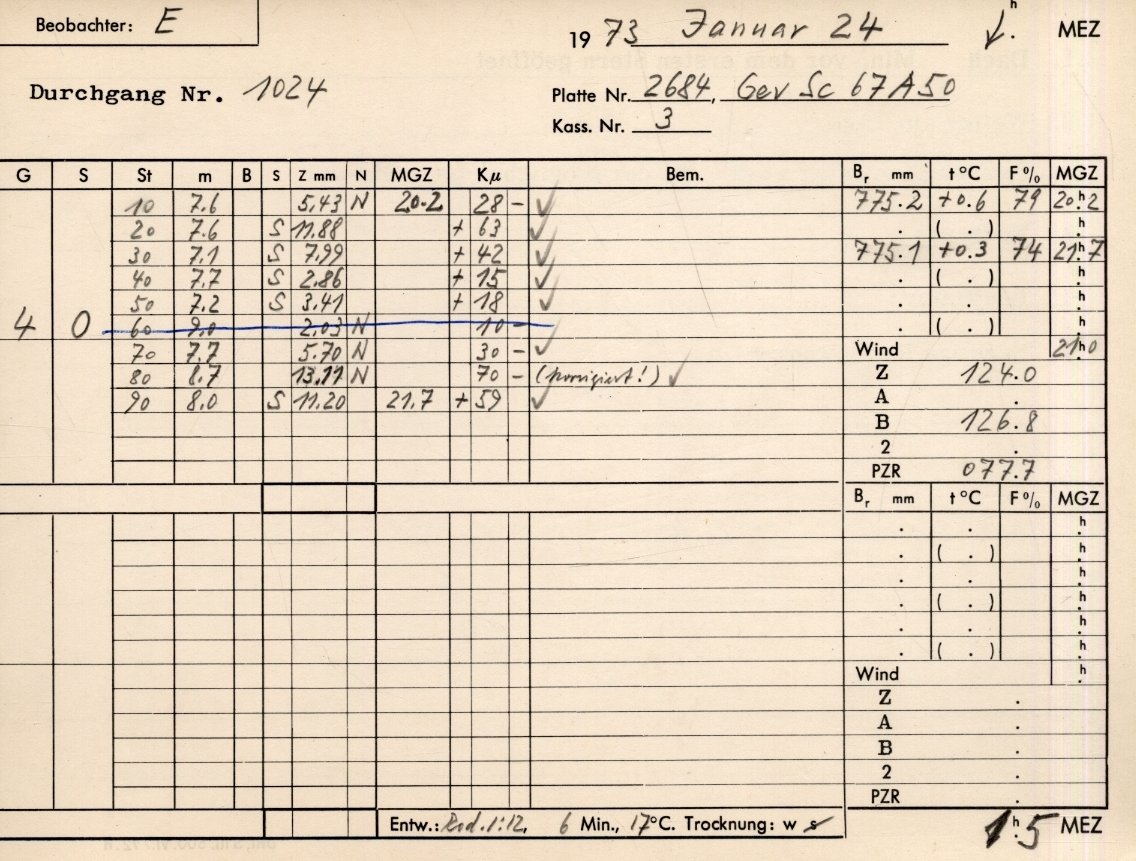 Beobachter: E
1973 Januar 24 h . MEZ
Durchgang Nr. 1024
Platte Nr. 2684, Gev Sc 67 A 50
Kass. Nr. 3
G S St m B S Z mm N MGZ Kμ Bem. Br mm t °C F % MGZ
10 7.6 5.43 N 20.2 28 - ✓ 775.2 +0.6 79 20h.2
20 7.6 S 11.88 + 63 ✓ . ( . ) h.
30 7.1 S 7.99 + 42 ✓ 775.1 +0.3 74 21h.7
40 7.7 S 2.86 + 15 ✓ . ( . ) h.
50 7.2 S 3.41 + 18 ✓ . . h.
4 O 60 9.0 2.03 N 10 - . ( . ) h.
70 7.7 5.70 N 30 - ✓ Wind 21h.0
80 8.7 13.11 N 70 - (korrigiert!) ✓ Z 124.0
90 8.0 S 11.20 21.7 + 59 ✓ A .
B 126.8
2 .
PZR 077.7
Br mm t °C F % MGZ
. . h.
. ( . ) h.
. . h.
. ( . ) h.
. . h.
. ( . ) h.
Wind h.
Z .
A .
B .
2 .
PZR .
Entw.: Rod. 1:12, 6 Min., 17°C. Trocknung: w s
1h.5 MEZ